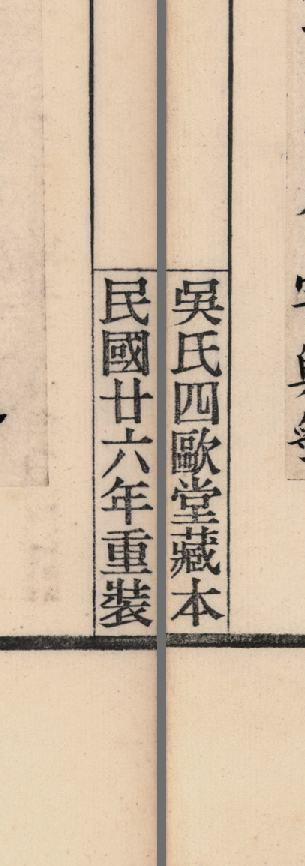 吳氏四歐堂藏本
民國廿六年重裝